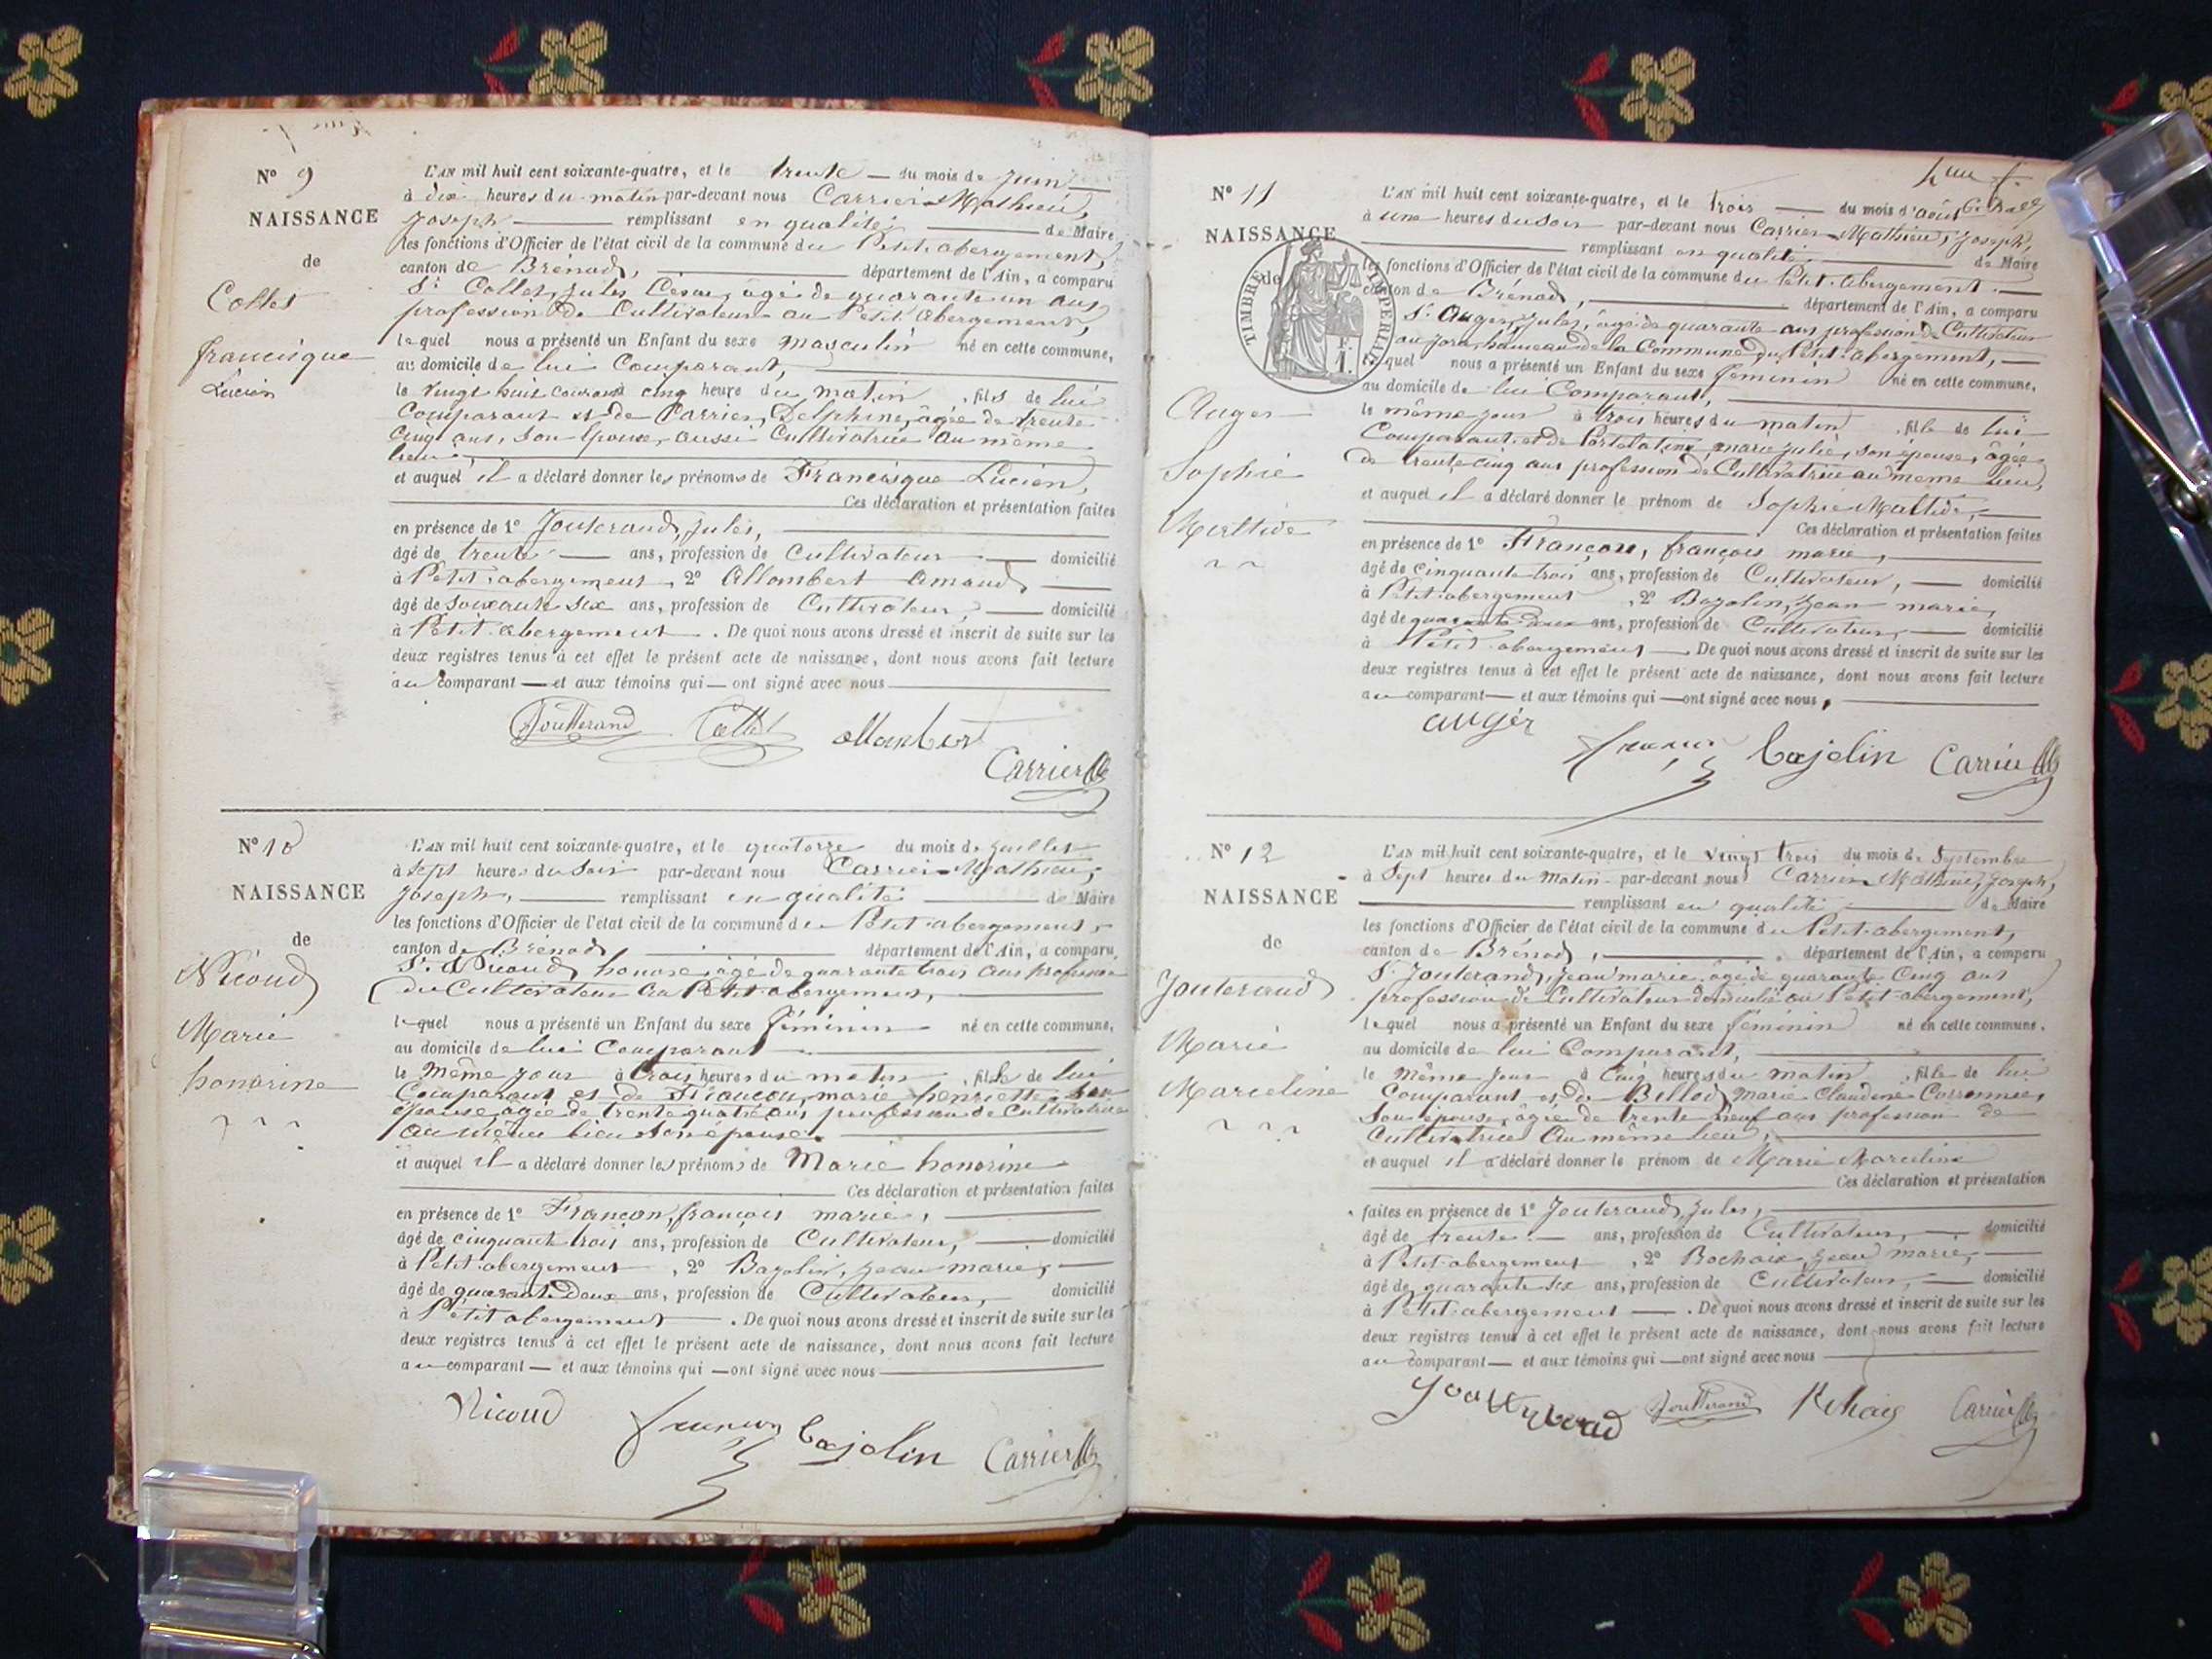 N° 9
NAISSANCE
de
Collet
francisque
Lucien
L'AN mil huit cent soixante-quatre, et le trente du mois de Juin
à dix heures du matin par-devant nous Carrier Mathieu,
Joseph remplissant en qualité de Maire
les fonctions d'Officier de l'état civil de la commune du Petit abergement,
canton de Brénod, département de l'Ain, a comparu
Sr Collet, Jules César, âgé de quarante un ans,
profession de Cultivateur au Petit abergement,
lequel nous a présenté un Enfant du sexe masculin né en cette commune,
au domicile de lui Comparant,
le vingt huit courant à cinq heure du matin, fils de lui
Comparant et de Carrier, Delphine, âgée de trente
cinq ans, son épouse, aussi Cultivatrice au même
lieu
et auquel il a déclaré donner les prénoms de Francisque Lucien,
Ces déclaration et présentation faites
en présence de 1° Jouterand, Jules,
âgé de trente ans, profession de Cultivateur domicilié
à Petit abergement, 2° Allombert Amand,
âgé de soixante six ans, profession de Cultivateur, domicilié
à Petit abergement. De quoi nous avons dressé et inscrit de suite sur les
deux registres tenus à cet effet le présent acte de naissance, dont nous avons fait lecture
au comparant et aux témoins qui ont signé avec nous
Joutterand Collet allombert
Carrier
N° 10
NAISSANCE
de
Nicoud
Marie
honorine
L'AN mil huit cent soixante-quatre, et le quatorze du mois de Juillet
à sept heures du soir par-devant nous Carrier Mathieu,
Joseph, remplissant en qualité de Maire
les fonctions d'Officier de l'état civil de la commune du Petit abergement,
canton de Brénod, département de l'Ain, a comparu
Sr Nicoud honoré, âgé de quarante trois ans profession
de Cultivateur au Petit abergement,
lequel nous a présenté un Enfant du sexe féminin né en cette commune,
au domicile de lui Comparant
le même jour à trois heures du matin, fille de lui
Comparant et de Françon, marie henriette, son
épouse, âgée de trente quatre ans, profession de Cultivatrice
au même lieu son épouse.
et auquel il a déclaré donner les prénoms de Marie honorine
Ces déclaration et présentation faites
en présence de 1° Françon, françois marie,
âgé de cinquante trois ans, profession de Cultivateur, domicilié
à Petit abergement, 2° Bazolin, Jean marie,
âgé de quarante Deux ans, profession de Cultivateur, domicilié
à Petit abergement. De quoi nous avons dressé et inscrit de suite sur les
deux registres tenus à cet effet le présent acte de naissance, dont nous avons fait lecture
au comparant et aux témoins qui ont signé avec nous
Nicoud françon bajolin Carrier
N° 11
NAISSANCE
de
TIMBRE IMPERIAL
Auger
Sophie
Maltide
L'AN mil huit cent soixante-quatre, et le trois du mois d'août
à une heures du soir par-devant nous Carrier Mathieu, Joseph,
remplissant en qualité de Maire
les fonctions d'Officier de l'état civil de la commune du Petit abergement
canton de Brénod, département de l'Ain, a comparu
Sr Auger, Jules, âgé de quarante ans profession de Cultivateur
au Jora, hameau de la Commune du Petit abergement,
lequel nous a présenté un Enfant du sexe féminin né en cette commune,
au domicile de lui Comparant,
le même jour à trois heures du matin, fille de lui
Comparant et de Portelatine, marie julie, son épouse, âgée
de trente cinq ans profession de Cultivatrice au même lieu,
et auquel il a déclaré donner le prénom de Sophie Maltide,
Ces déclaration et présentation faites
en présence de 1° Françon, françois marie,
âgé de cinquante trois ans, profession de Cultivateur, domicilié
à Petit abergement, 2° Bazolin, Jean marie,
âgé de quarante Deux ans, profession de Cultivateur, domicilié
à Petit abergement. De quoi nous avons dressé et inscrit de suite sur les
deux registres tenus à cet effet le présent acte de naissance, dont nous avons fait lecture
au comparant et aux témoins qui ont signé avec nous,
auger
bajolin Carrier
N° 12
NAISSANCE
de
Jouterand
Marie
Marceline
L'AN mil huit cent soixante-quatre, et le vingt trois du mois de Septembre
à Sept heures du Matin par-devant nous Carrier Mathieu, Joseph,
remplissant en qualité de Maire
les fonctions d'Officier de l'état civil de la commune du Petit abergement,
canton de Brénod, département de l'Ain, a comparu
Sr Jouterand, Jean marie, âgé de quarante cinq ans
profession de Cultivateur domicilié au Petit abergement,
lequel nous a présenté un Enfant du sexe féminin né en cette commune,
au domicile de lui Comparant,
le même jour à Cinq heures du matin, fille de lui
Comparant et de Billod, Marie Claudine
son épouse, âgée de trente neuf ans profession de
Cultivatrice au même lieu,
et auquel il a déclaré donner le prénom de Marie Marceline
Ces déclaration et présentation
faites en présence de 1° Jouterand, Jules,
âgé de trente ans, profession de Cultivateur, domicilié
à Petit abergement, 2° Rochaix, Jean marie,
âgé de quarante six ans, profession de Cultivateur, domicilié
à Petit abergement. De quoi nous avons dressé et inscrit de suite sur les
deux registres tenus à cet effet le présent acte de naissance, dont nous avons fait lecture
au comparant et aux témoins qui ont signé avec nous
Joutterand Carrier